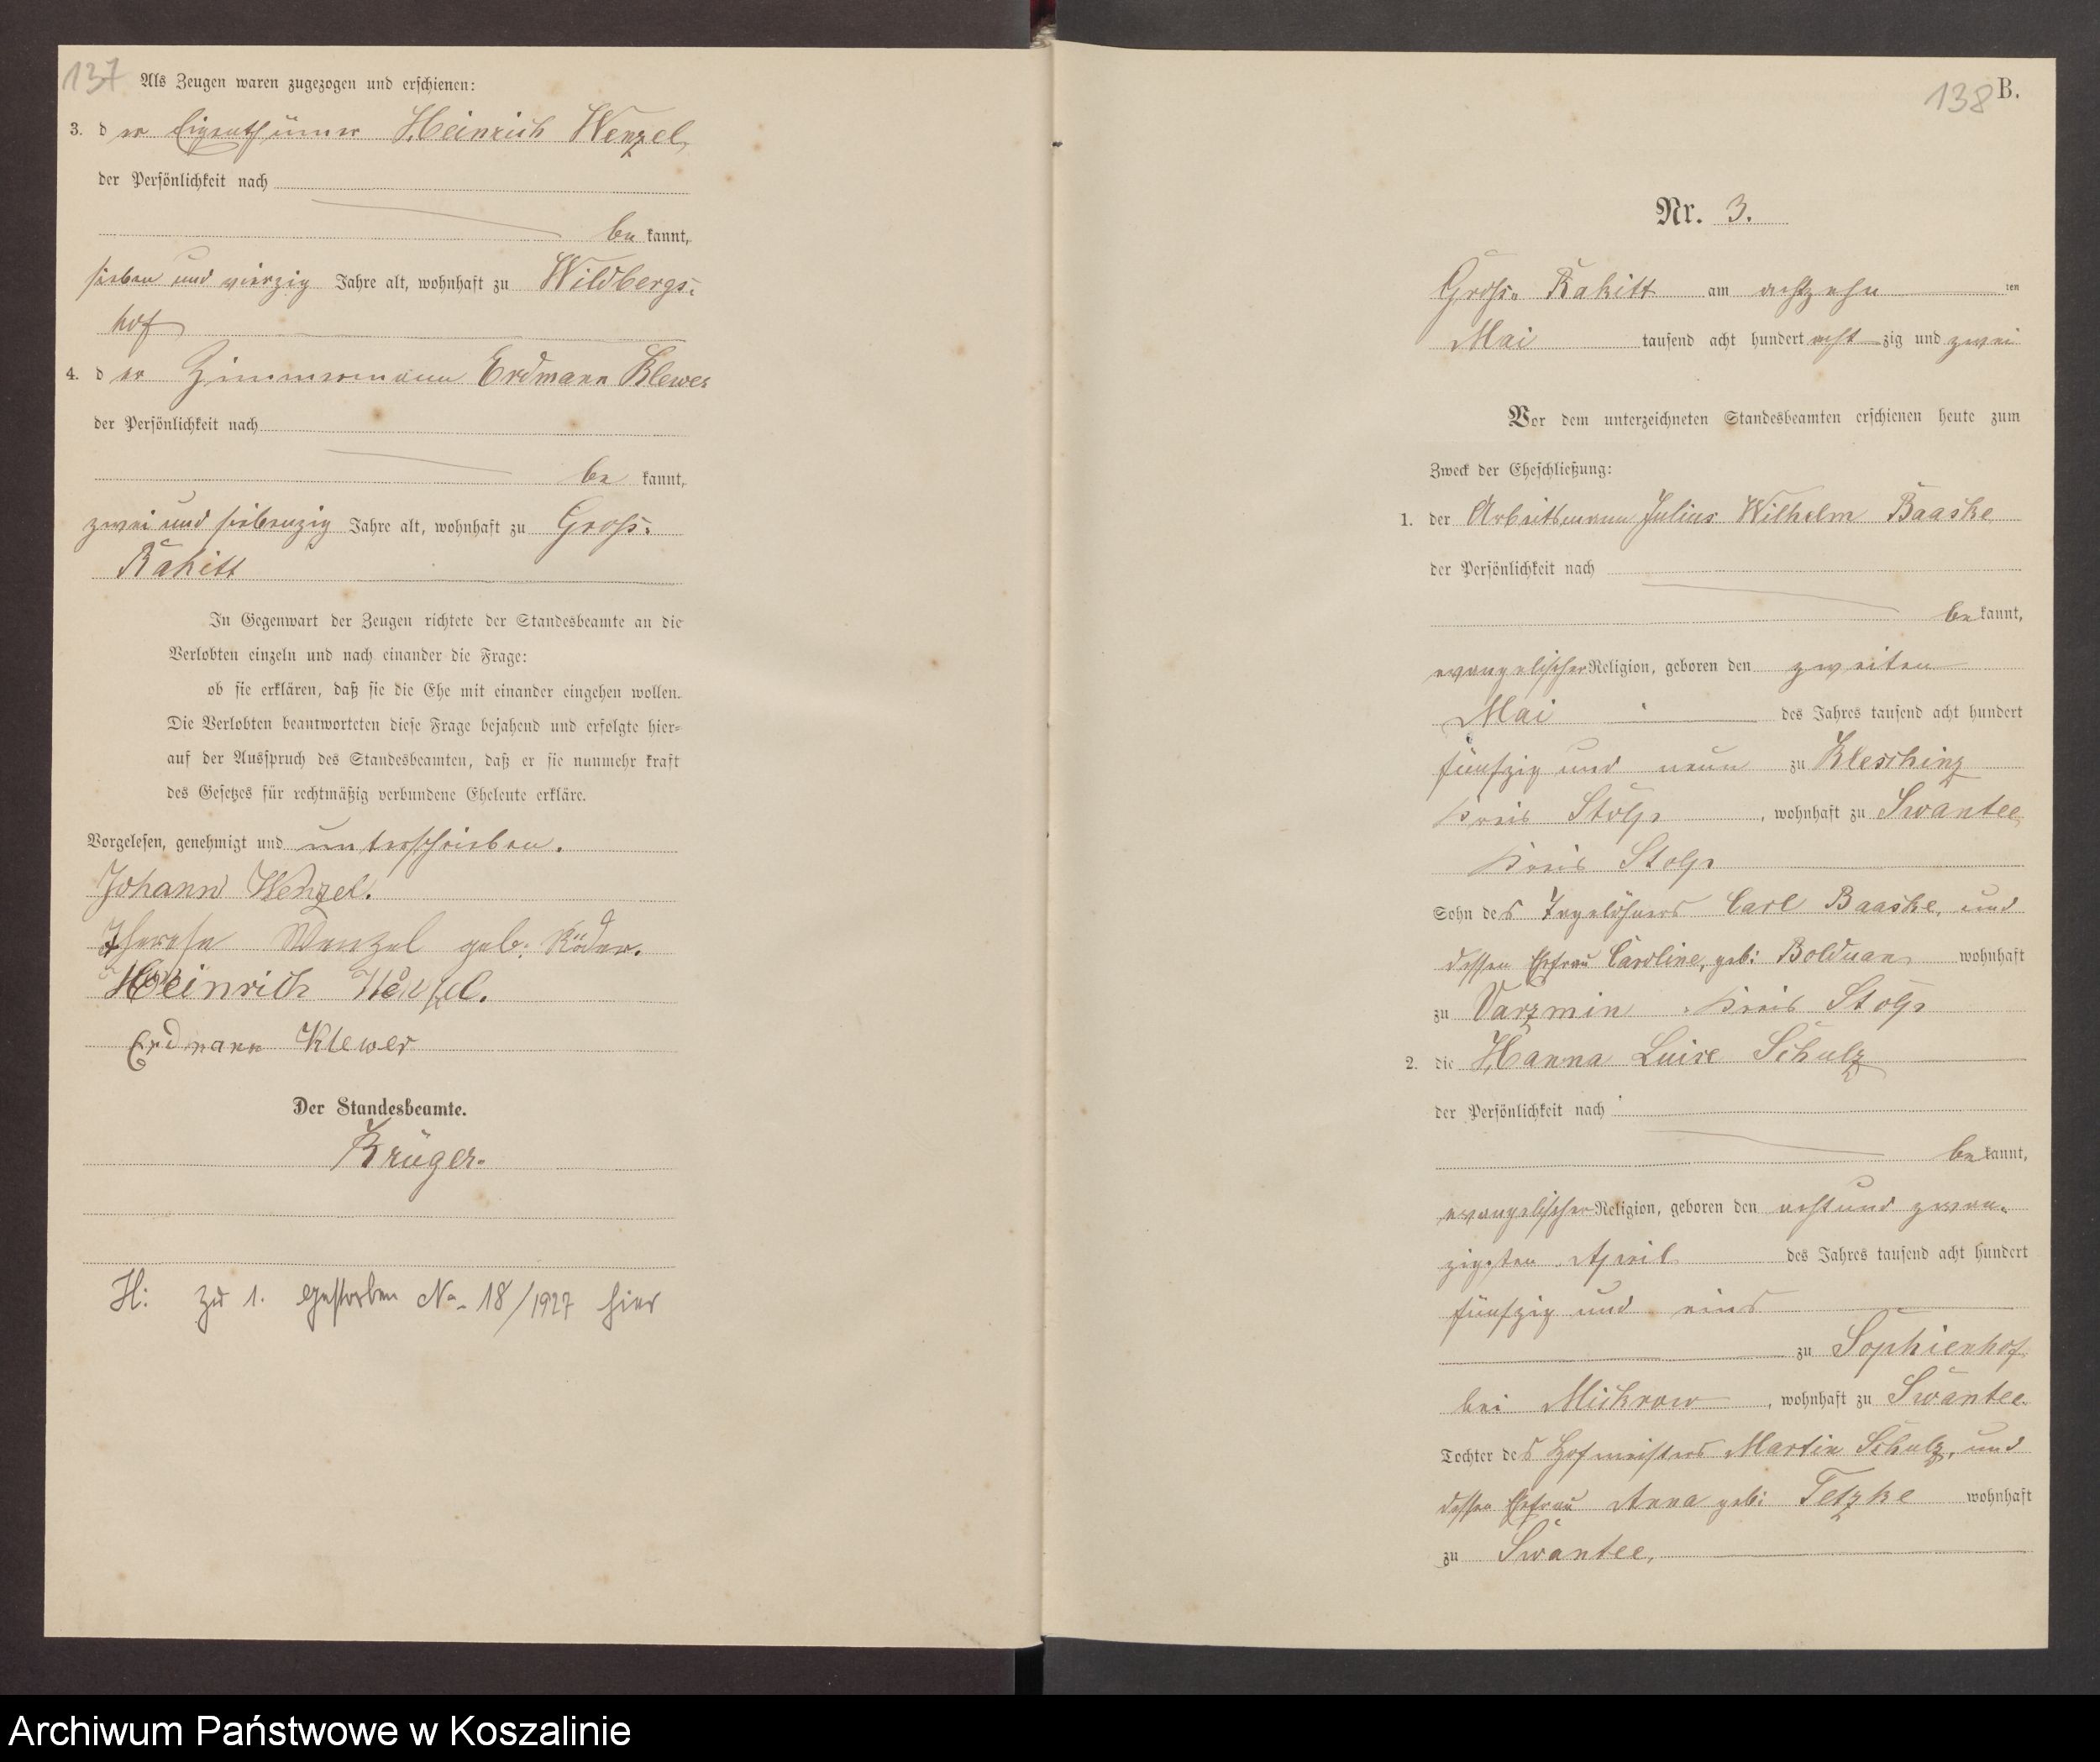 137
Als Zeugen waren zugezogen und erschienen:
3. der Eigenthümer Heinrich Wenzel,
der Persönlichkeit nach
be kannt,
sieben und vierzig Jahre alt, wohnhaft zu Wildbergs-
hof
4. der Zimmermann Erdmann Klewer
der Persönlichkeit nach
be kannt,
zwei und siebenzig Jahre alt, wohnhaft zu Groß-
Rakitt
In Gegenwart der Zeugen richtete der Standesbeamte an die
Verlobten einzeln und nach einander die Frage:
ob sie erklären, daß sie die Ehe mit einander eingehen wollen.
Die Verlobten beantworteten diese Frage bejahend und erfolgte hier-
auf der Ausspruch des Standesbeamten, daß er sie nunmehr kraft
des Gesetzes für rechtmäßig verbundene Eheleute erkläre.
Vorgelesen, genehmigt und unterschrieben.
Johann Wenzel.
Therese Wenzel geb. Röder.
Heinrich Wenzel.
Erdmann Klewer
Der Standesbeamte.
Krüger.
H: zu 1. gestorben No. 18/1927 hier
138 B.
Nr. 3.
Groß- Rakitt am achtzehn ten
Mai tausend acht hundert acht zig und zwei
Vor dem unterzeichneten Standesbeamten erschienen heute zum
Zweck der Eheschließung:
1. der Arbeitsmann Julius Wilhelm Baaske
der Persönlichkeit nach
be kannt,
evangelischer Religion, geboren den zweiten
Mai des Jahres tausend acht hundert
fünfzig und neun zu Kleschinz
Kreis Stolp, wohnhaft zu Swantee,
Kreis Stolp
Sohn des Tagelöhners Carl Baaske, und
dessen Ehefrau Caroline, geb: Bolduan wohnhaft
zu Varzmin Kreis Stolp
2. die Hanna Luise Schulz
der Persönlichkeit nach
be kannt,
evangelischer Religion, geboren den acht und zwan-
zigsten April des Jahres tausend acht hundert
fünfzig und eins
zu Sophienhof
bei Mickrow, wohnhaft zu Swantee
Tochter des Hofmeisters Martin Schulz, und
dessen Ehefrau Anna geb: Tetzke wohnhaft
zu Swantee,
Archiwum Państwowe w Koszalinie